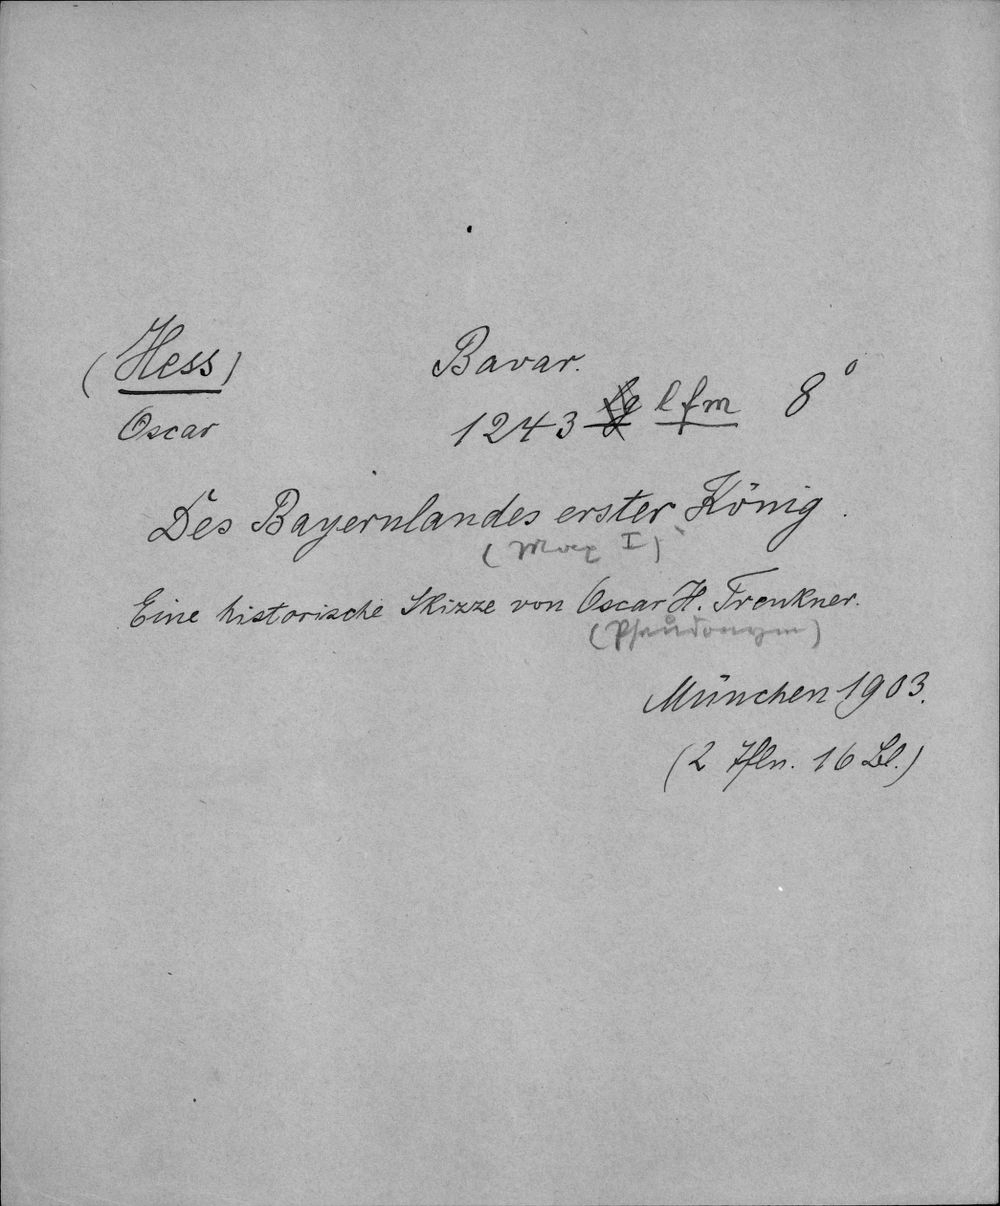 (Hess) Bavar.
Oscar 1243 lfm 8°
Des Bayernlandes erster König.
(Max I)
Eine historische Skizze von Oscar H. Trenkner.
(Pseudonym)
München 1903.
(2 Tfln. 16 Bl.)